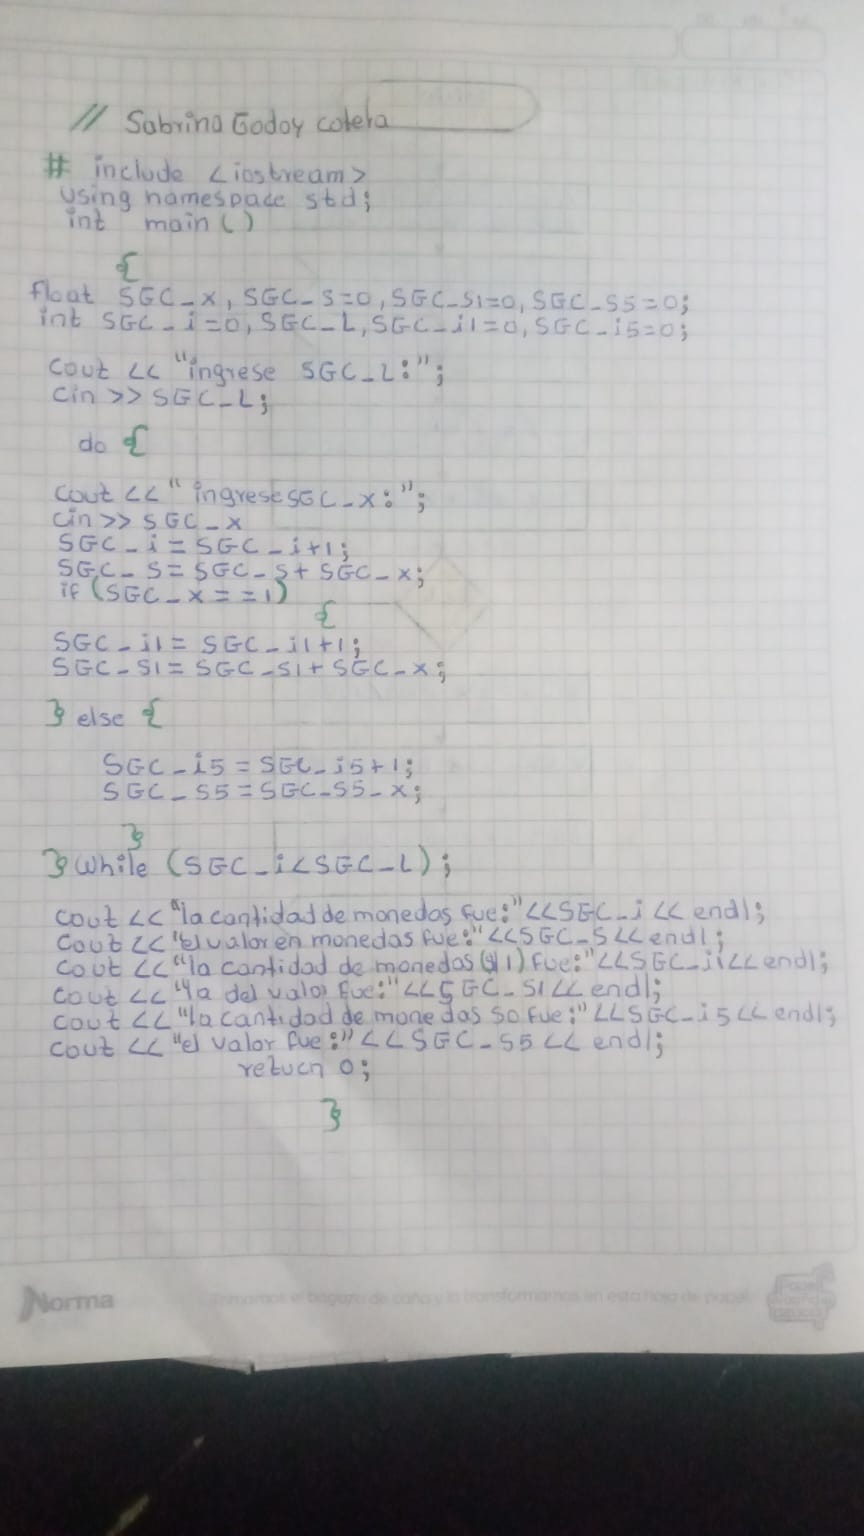 // Sabrina Godoy cotera
# include <iostream>
using namespace std;
int main()
{
float SGC_x, SGC_s=0, SGC_s1=0, SGC_s5=0;
int SGC_i=0, SGC_L, SGC_i1=0, SGC_i5=0;
cout << "ingrese SGC_L:";
cin >> SGC_L;
do {
cout << "ingrese SGC_x:";
cin >> SGC_x
SGC_i = SGC_i+1;
SGC_s = SGC_s + SGC_x;
if (SGC_x == 1)
{
SGC_i1 = SGC_i1+1;
SGC_s1 = SGC_s1 + SGC_x;
} else {
SGC_i5 = SGC_i5+1;
SGC_s5 = SGC_s5_x;
}
} while (SGC_i<SGC_L);
cout << "la cantidad de monedas fue:"<<SGC_i << endl;
cout << "el valor en monedas fue:"<<SGC_s<< endl;
cout << "la cantidad de monedas ($1) fue:"<<SGC_i1<< endl;
cout << "la del valor fue:"<<SGC_s1<< endl;
cout << "la cantidad de monedas so fue:"<<SGC_i5<< endl;
cout << "el valor fue:"<<SGC_s5<< endl;
return 0;
}
Norma